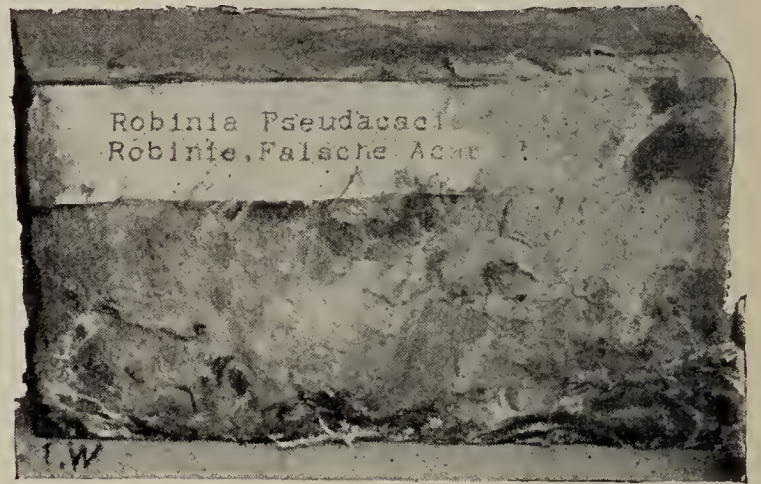 Robinia Pseudacaci
Robinie, Falsche